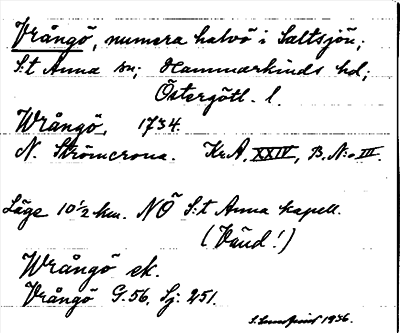 Vrångö, numera halvö i Saltsjön;
S:t Anna sn; Hammarkinds hd;
Östergötl. l.
Wrångö, 1734.
N. Strömcrona. Kr.A. XXIV, B. N:o III.
Läge 10 1/2 km. NÖ S:t Anna kapell.
(Vänd!)
Wrångö ek.
Vrångö G. 56. Sj: 251.
1936.